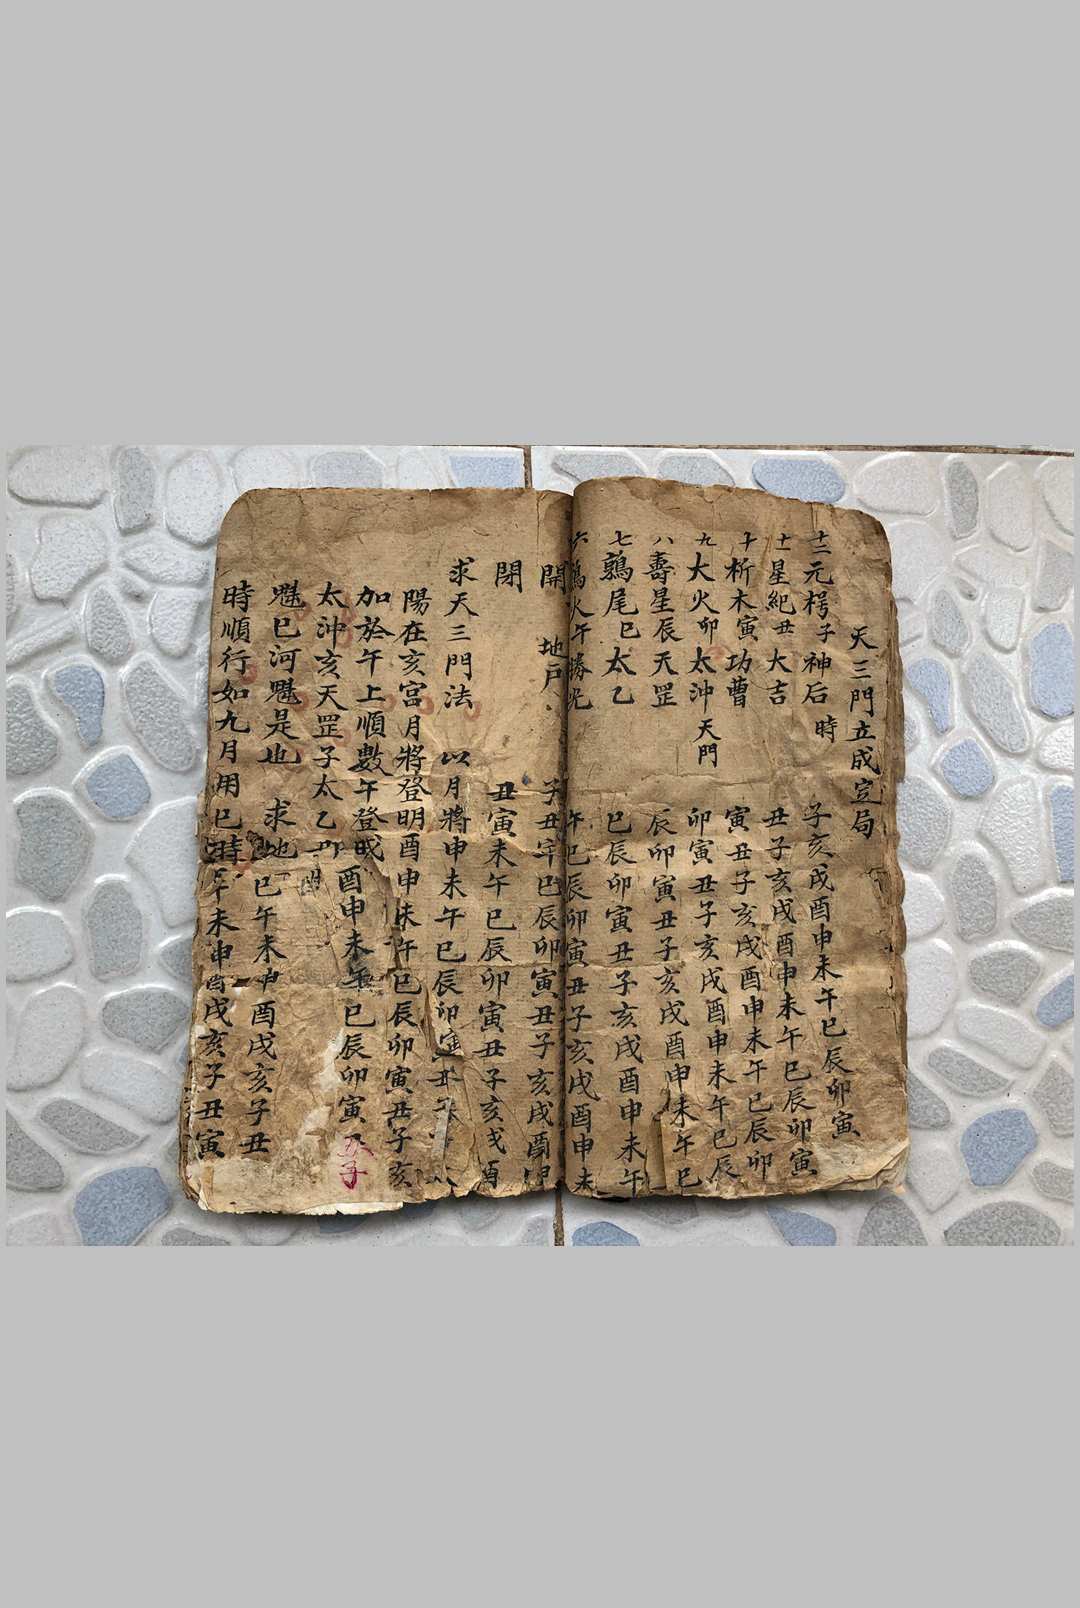 天三門立成定局
十二元枵子神后 時 子亥戌酉申未午巳辰卯寅
十一星紀丑大吉 丑子亥戌酉申未午巳辰卯寅
十析木寅功曹 寅丑子亥戌酉申未午巳辰卯
九大火卯太沖天門 卯寅丑子亥戌酉申未午巳辰
八壽星辰天罡 辰卯寅丑子亥戌酉申未午巳
七鶉尾巳太乙 巳辰卯寅丑子亥戌酉申未午
六鶉火午勝光 午巳辰卯寅丑子亥戌酉申未
開 地戶 子丑午巳辰卯寅丑子亥戌酉申
閉 丑寅未午巳辰卯寅丑子亥戌酉
求天三門法 以月將申未午巳辰卯寅丑
陽在亥宮月將登明酉申未午巳辰卯寅丑子亥
加於午上順數午登明酉申未午巳辰卯寅子
太沖亥天罡子太乙
魁巳河魁是也 求地巳午未申酉戌亥子丑
時順行如九月用巳時午未申酉戌亥子丑寅